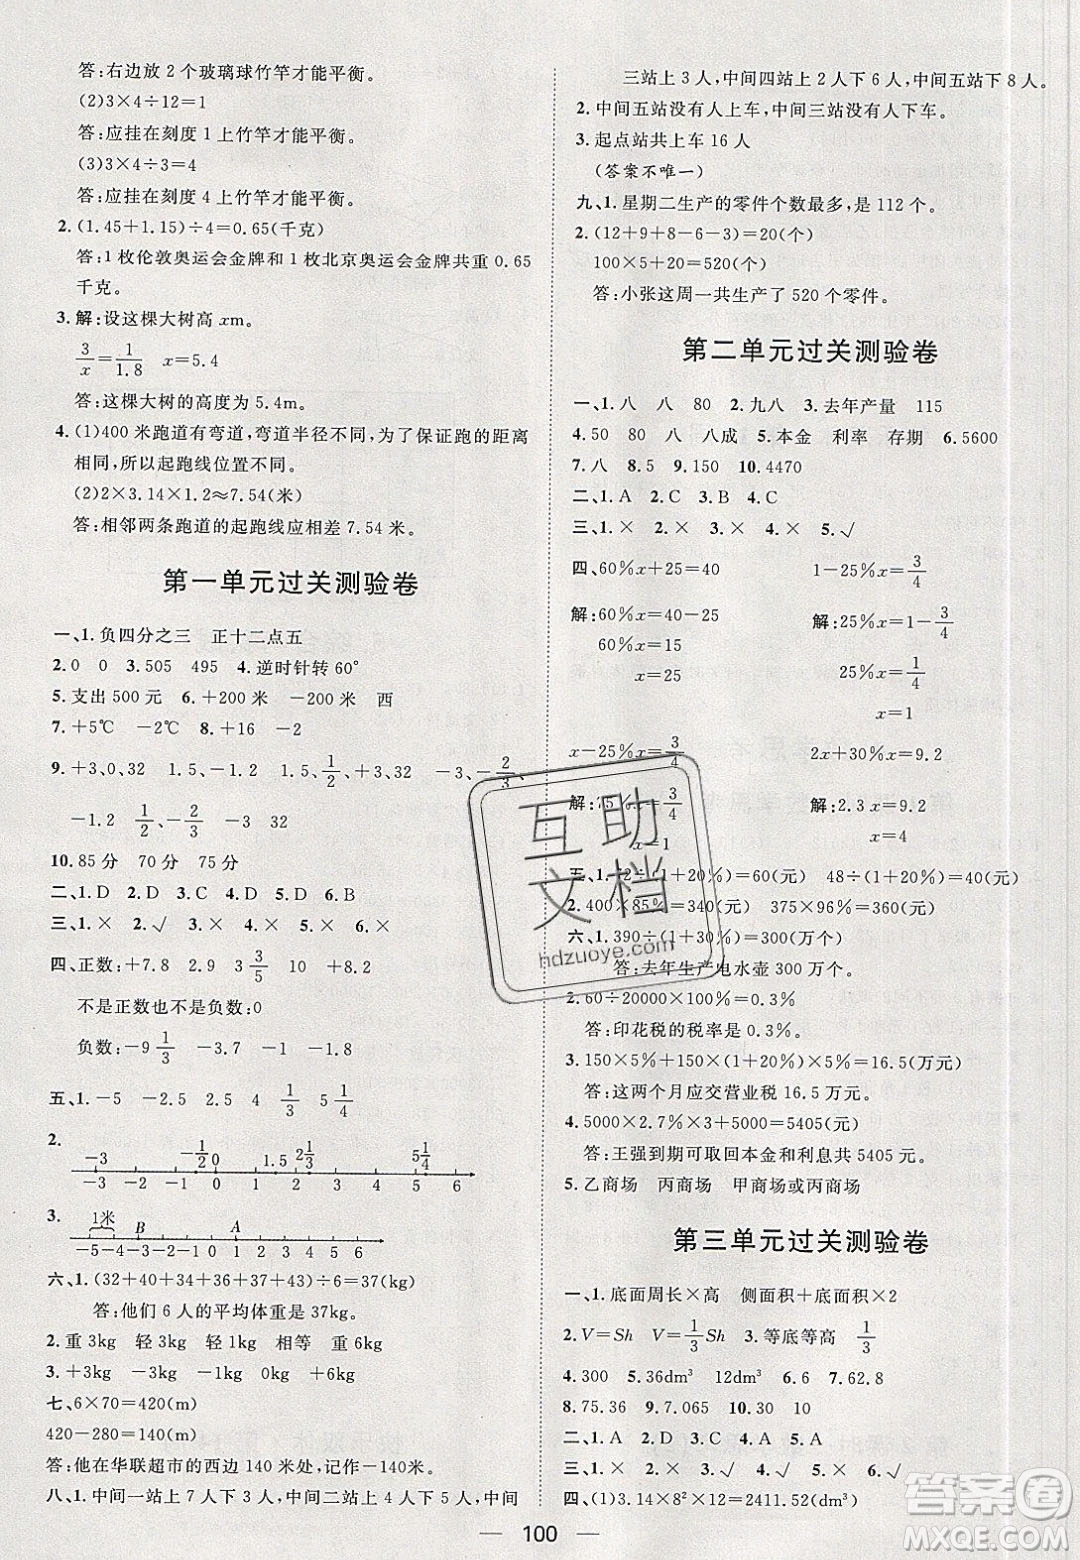 答:右边放 2 个玻璃球竹竿才能平衡。
(2)3×4÷12=1
答:应挂在刻度 1 上竹竿才能平衡。
(3)3×4÷3=4
答:应挂在刻度 4 上竹竿才能平衡。
2.(1.45+1.15)÷4=0.65(千克)
答:1 枚伦敦奥运会金牌和 1 枚北京奥运会金牌共重 0.65
千克。
3.解:设这棵大树高 xm。
3/x=1/1.8 x=5.4
答:这棵大树的高度为 5.4m。
4.(1)400 米跑道有弯道,弯道半径不同,为了保证跑的距离
相同,所以起跑线位置不同。
(2)2×3.14×1.2≈7.54(米)
答:相邻两条跑道的起跑线应相差 7.54 米。
第一单元过关测验卷
一、1.负四分之三 正十二点五
2.0 0 3.505 495 4.逆时针转 60°
5.支出 500 元 6.+200 米 -200 米 西
7.+5℃ -2℃ 8.+16 -2
9.+3、0、32 1.5、-1.2 1.5、1/2、+3、32 -3、-2/5、
-1.2 1/2、-3 32
10.85 分 70 分 75 分
二、1.D 2.D 3.C 4.D 5.D 6.B
三、1.× 2.√ 3.× 4.× 5.× 6.×
四、正数:+7.8 2.9 3 3/5 10 +8.2
不是正数也不是负数:0
负数:-9 1/3 -3
五、1.-5 -2.5 -2 2 4 1/3 5 1/4
2.
-3 -1/2 0 1.5 2 1/3 5 1/4
-3 -2 -1 0 1 2 3 4 5 6
3.
1米 B A
-5-4-3-2-1 0 1 2 3 4 5 6
六、1.(32+40+34+36+37+43)÷6=37(kg)
答:他们 6 人的平均体重是 37kg。
2.重 3kg 轻 3kg 轻 1kg 相等 重 6kg
3.+3kg -1kg -3kg +1kg
七、6×70=420(m)
420-280=140(m)
答:他在华联超市的西边 140 米处,记作-140 米。
八、1.中间一站上 7 人下 3 人,中间二站上 4 人下 5 人,中间
三站上 3 人,中间四站上 2 人下 6 人,中间五站下 8 人。
2.中间五站没有人上车,中间三站没有人下车。
3.起点站共上车 16 人
(答案不唯一)
九、1.星期二生产的零件个数最多,是 112 个。
2.(12+9+8-6-3)=20(个)
100×5+20=520(个)
答:小张这周一共生产了 520 个零件。
第二单元过关测验卷
一、1.八 八 80 2.九八 3.去年产量 115
4.50 80 八 八成 5.本金 利率 存期 6.5600
7.八 8.5 9.150 10.4470
二、1.A 2.C 3.B 4.C
三、1.× 2.× 3.× 4.× 5.√
四、60%x+25=40 1-25%x=3/4
解:60%x=40-25 解:25%x=1-3/4
60%x=15 25%x=1/4
x=25 x=1
x-25%x=3/4 2x+30%x=9.2
解:75%x=3/4 解:2.3x=9.2
x=1 x=4
五、1.72÷(1+20%)=60(元) 48÷(1+20%)=40(元)
2.400×85%=340(元) 375×96%=360(元)
六、1.390÷(1+30%)=300(万个)
答:去年生产电水壶 300 万个。
2.60÷20000×100%=0.3%
答:印花税的税率是 0.3%。
3.150×5%+150×(1+20%)×5%=16.5(万元)
答:这两个月应交营业税 16.5 万元。
4.5000×2.7%×3+5000=5405(元)
答:王强到期可取回本金和利息共 5405 元。
5.乙商场 丙商场 甲商场或丙商场
第三单元过关测验卷
一、1.底面周长×高 侧面积+底面积×2
2.V=Sh V=1/3Sh 3.等底等高 1/3
4.300 5.36dm³ 12dm³ 6.50.24 7.62.8
8.75.36 9.7.065 10.113.04
二、1.C 2.A 3.C 4.A 5.A
三、1.× 2.× 3.× 4.√ 5.×
四、(1)3.14×8²×12=2411.52(dm³)
100
互助
文档
hdzuoye.com
答案圈
MXQE.COM